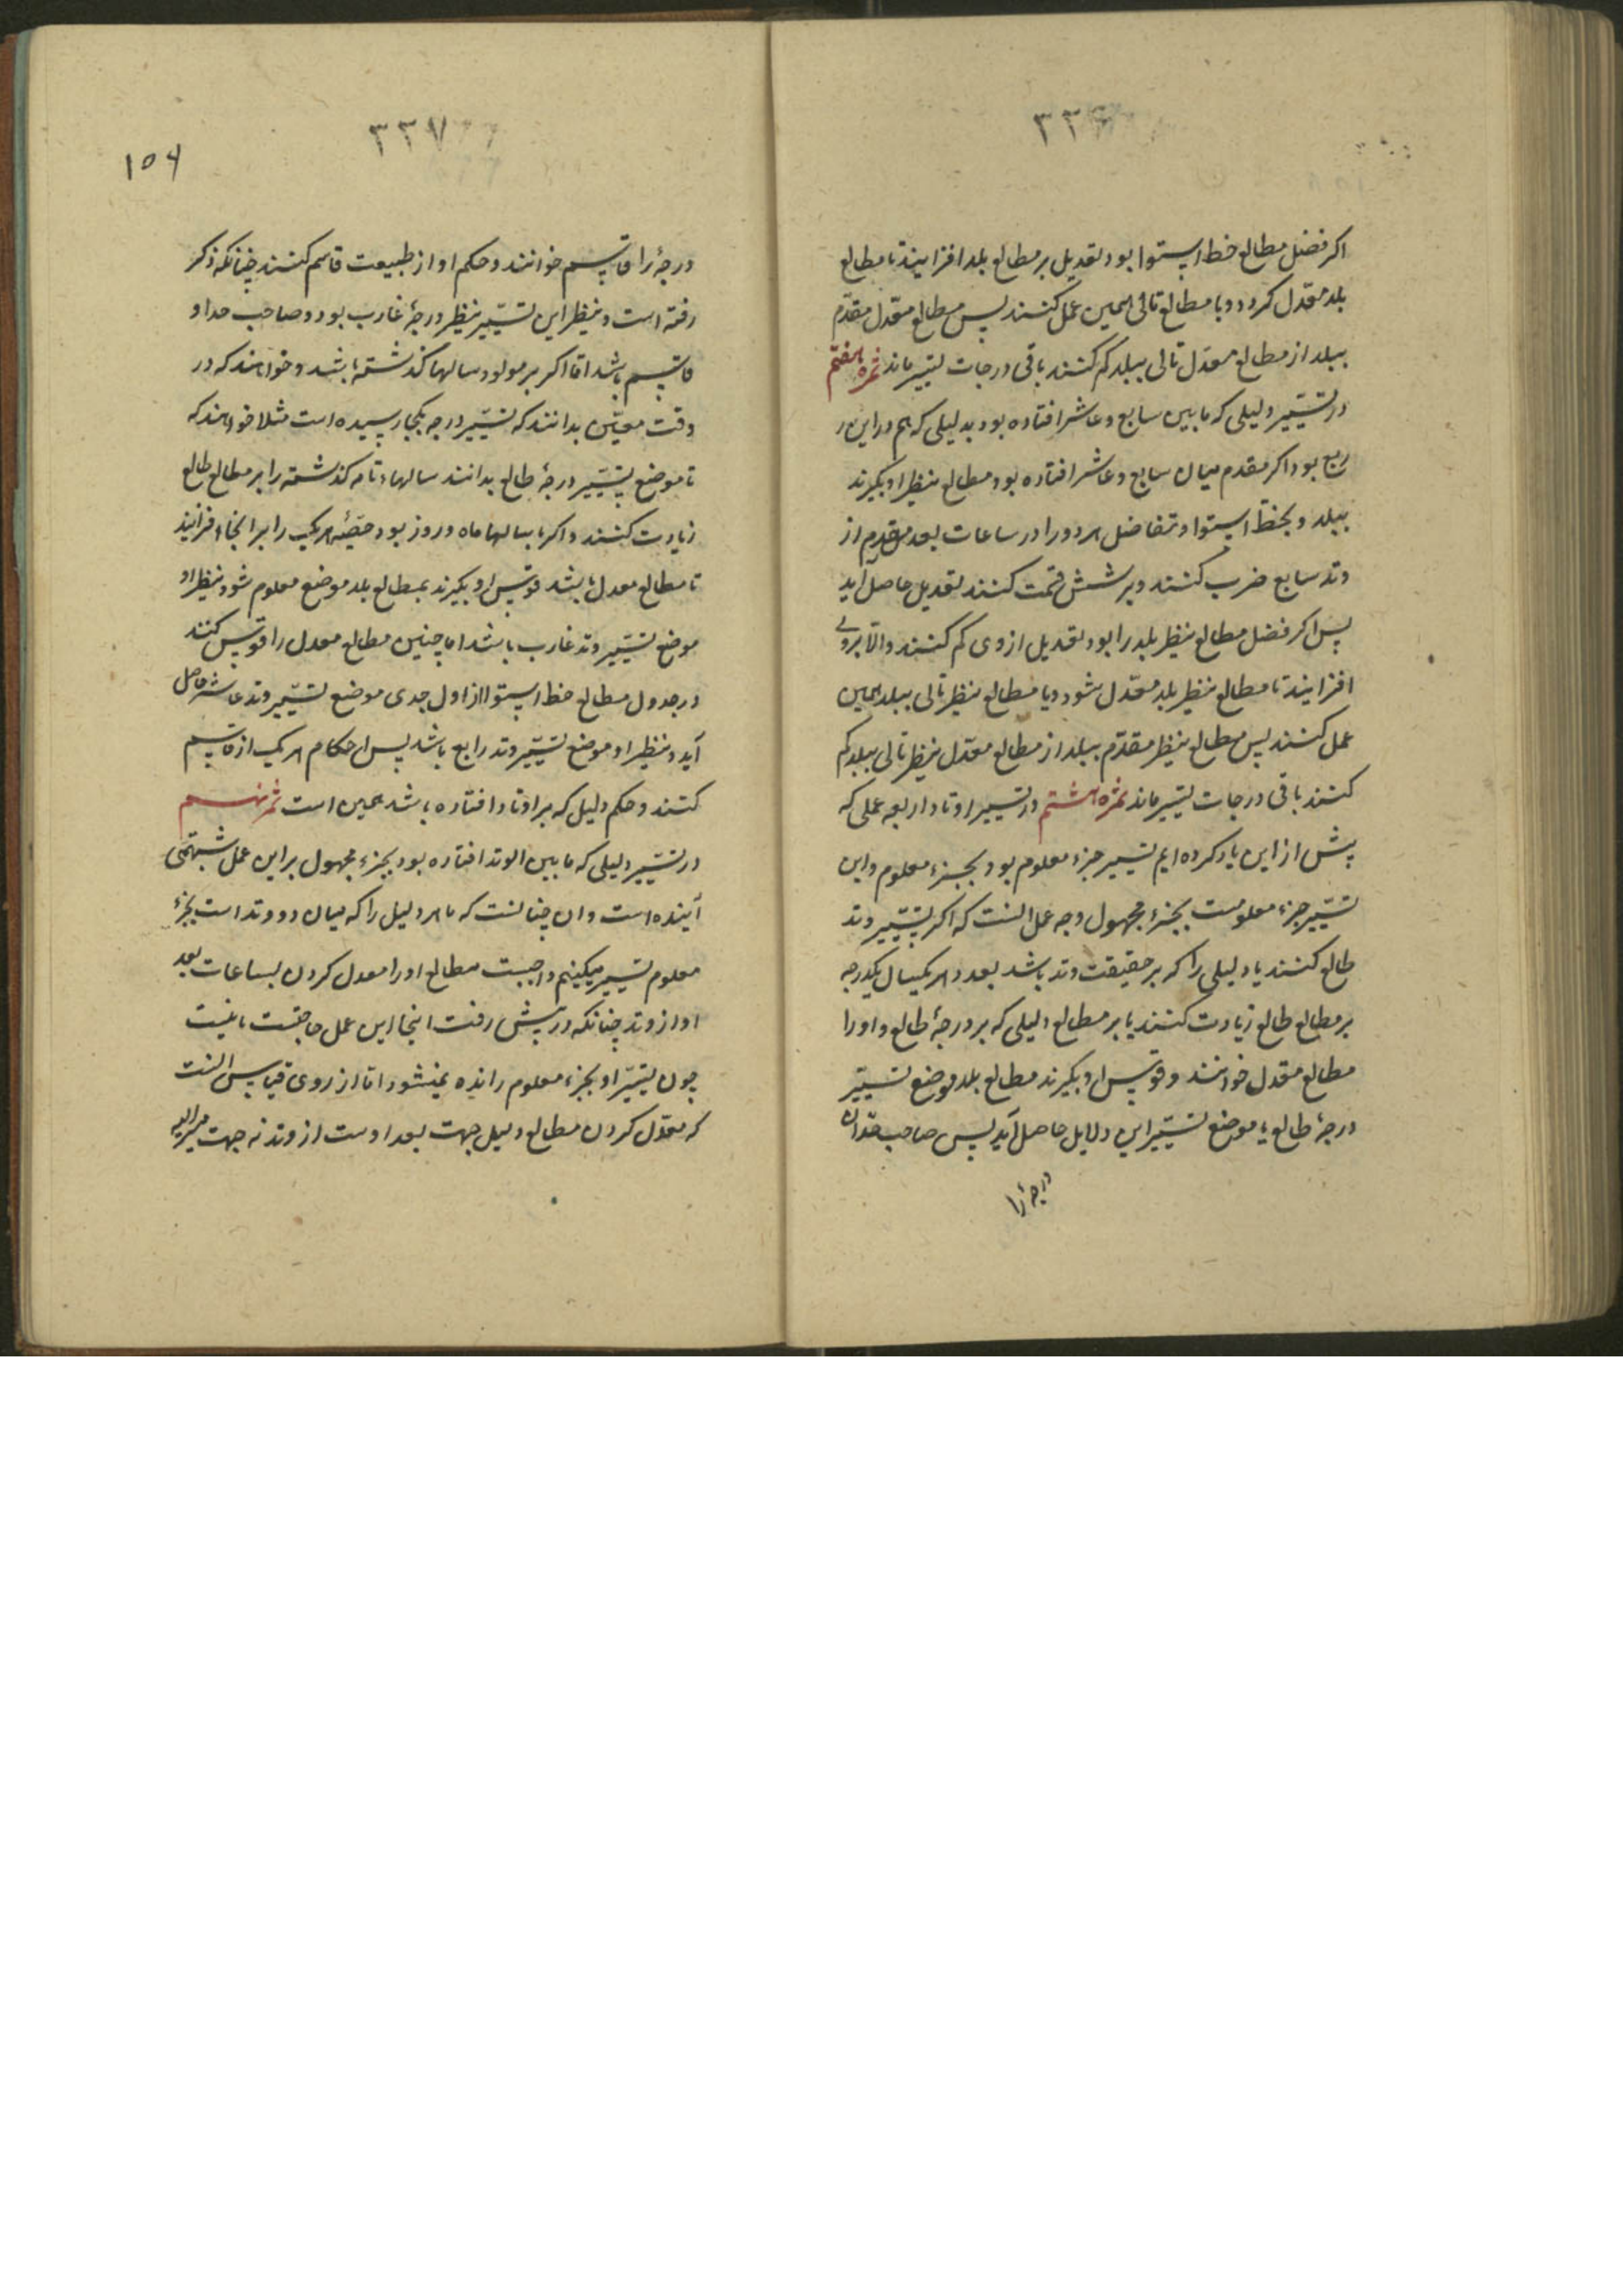 ۳۳۶
اکر فضل مطالع خط استوا بود تعدیل بر مطالع بلد افزایند تا مطالع
بلد معدّل کردد و با مطالع تالی همین عمل کنند پس مطالع معدّل مقدّم
ببلد از مطالع معدّل تالی ببلد کم کنند باقی درجات تسییر ماند ثمره هفتم
در تسییر دلیلی که مابین سابع و عاشر افتاده بود بدلیلی که هم در این
ربع بود اکر مقدم میان سابع و عاشر افتاده بود مطالع نظیر او بکیرند
ببلد و بخط استوا و تفاضل هر دو را در ساعات بعد مقدم از
وتد سابع ضرب کنند و بر شش قسمت کنند تعدیل حاصل اید
پس اکر فضل مطالع نظیر بلد را بود تعدیل از وی کم کنند والا بروی
افزایند تا مطالع نظیر بلد معدّل شود و با مطالع نظیر تالی ببلد همین
عمل کنند پس مطالع نظیر مقدّم ببلد از مطالع معدّل نظیر تالی ببلد کم
کنند باقی درجات تسییر ماند ثمره هشتم در تسییر اوتاد اربعه عملی که
پیش از این یاد کرده ایم تسییر جزء معلوم بود بجزء معلوم و این
تسییر جزء معلومست بجزء مجهول وجه عمل انست که اکر تسییر وتد
طالع کنند یا دلیلی را که بر حقیقت وتد باشد بعدد هر یکسال یکدرجه
بر مطالع طالع زیادت کنند یا بر مطالع دلیلی که بر درجهٔ طالع و او را
مطالع معدل خوانند و قوس او بکیرند مطالع بلد موضع تسییر
درجهٔ طالع یا موضع تسییر این دلایل حاصل آید پس صاحب حد آن
درجهٔ را
۳۳۷
۱۵۶
درجهٔ را قاسم خوانند و حکم او از طبیعت قاسم کنند چنانکه ذکر
رفته است و نظیر این تسییر نظیر درجهٔ غارب بود و صاحب حد او
قاسم باشد امّا اکر بر مولود سالها کذشته باشد و خواهند که در
وقت معیّن بدانند که تسییر درجه بکجا رسیده است مثلا خواهند که
تا موضع تسییر درجهٔ طالع بدانند سالهاء تامه کذشته را بر مطالع طالع
زیادت کنند و اکر با سالها ماه و روز بود حصّهٔ هر یک را بر انجا افزایند
تا مطالع معدل باشد قوس او بکیرند بمطالع بلد موضع معلوم شود نظیر او
موضع تسییر وتد غارب باشد اما چنین مطالع معدل را قوس کنند
در جدول مطالع خط استوا از اول جدی موضع تسییر وتد عاشر حاصل
آید و نظیر او موضع تسییر وتد رابع باشد پس احکام هر یک از قاسم
کنند و حکم دلیل که بر اوتاد افتاده باشد همین است ثمره نهم
در تسییر دلیلی که مابین الوتد افتاده بود بجزء مجهول بر این عمل شبهتی
آینده است و ان چنانست که ما هر دلیل را که میان دو وتد است بجزء
معلوم تسییر میکنیم واجبست مطالع او را معدل کردن بساعات بعد
او از وتد چنانکه در پیش رفت اینجا این عمل حاجتست یا نیست
چون تسییر او بجزء معلوم رانده نمیشود امّا از روی قیاس انست
که معدّل کردن مطالع دلیل جهت بعد اوست از وتد نه جهت